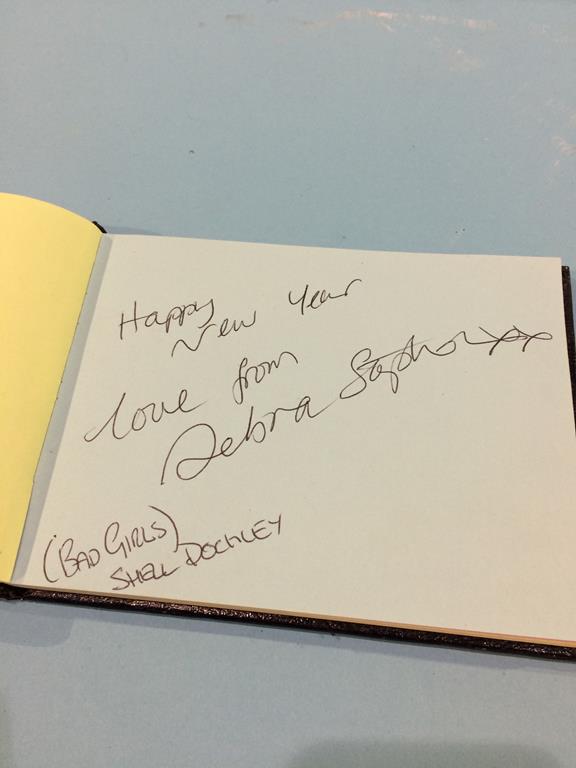 Happy
New Year
love from
Debra Stephenson xx
(BAD GIRLS)
SHELL DOCKLEY